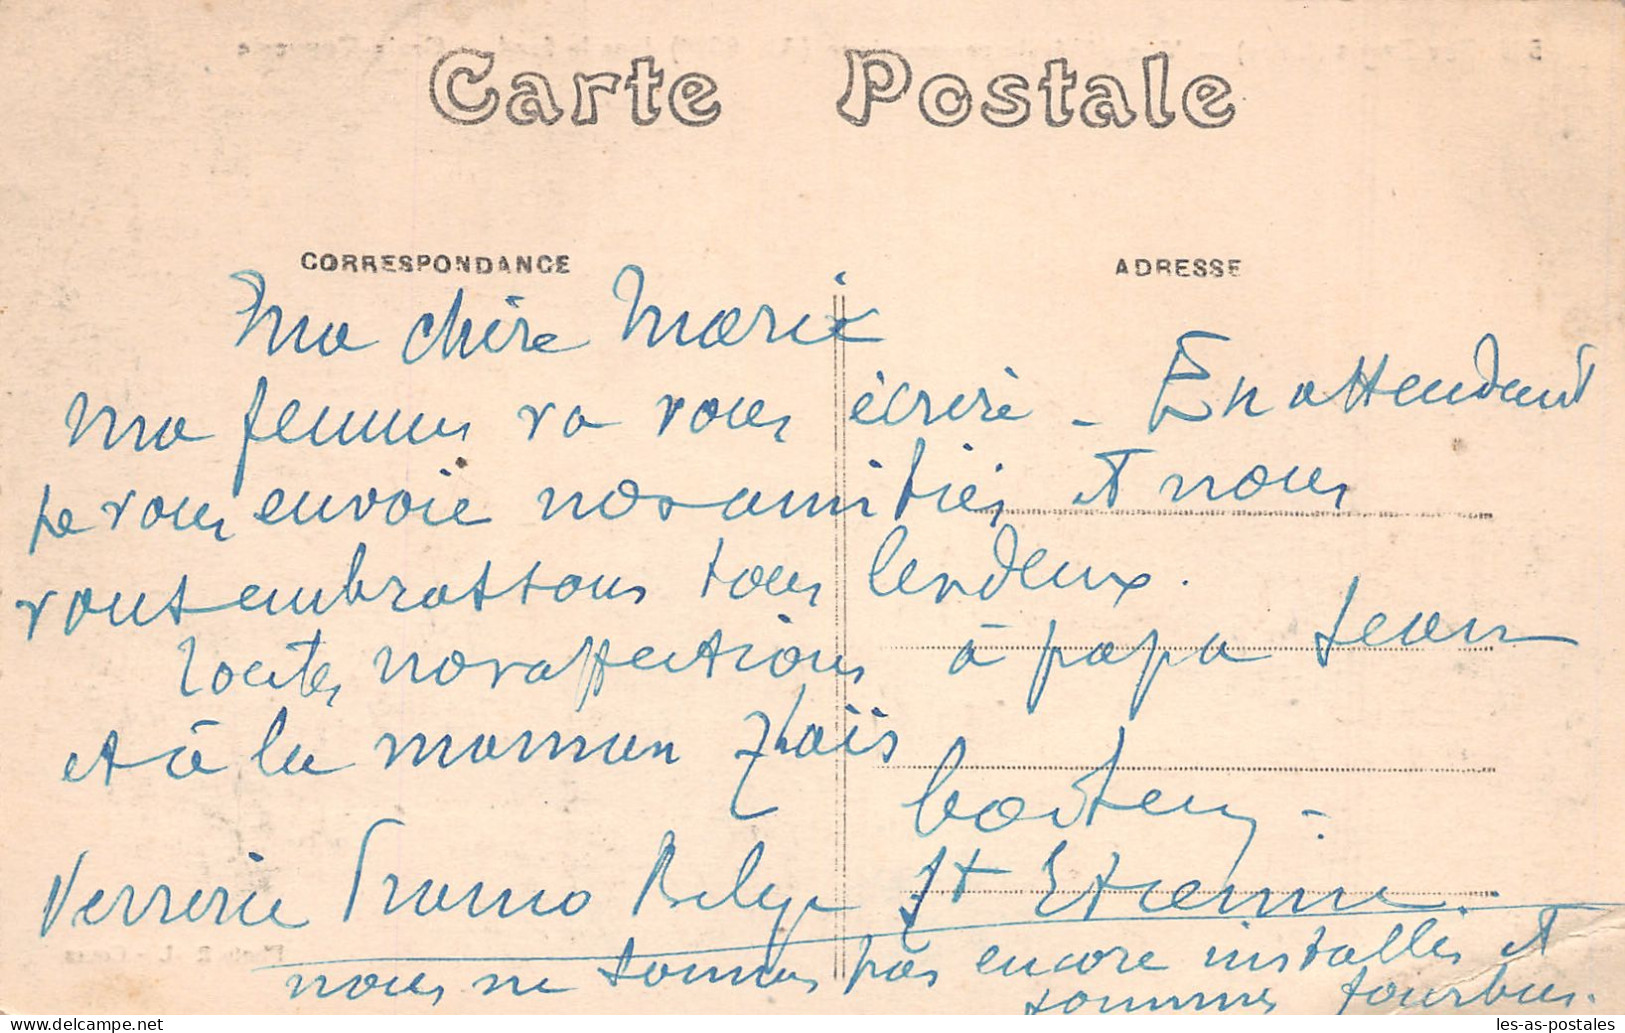 Carte Postale
CORRESPONDANCE
ADRESSE
Ma chère Marie
ma femme va vous écrire - En attendant
je vous envoie nos amitiés et nous
vous embrassons tous les deux.
Toutes nos affections à papa Jean
et à la maman
Verrerie Franco Belge St Etienne.
nous ne sommes pas encore installés et
sommes fourbus.
les-as-postales